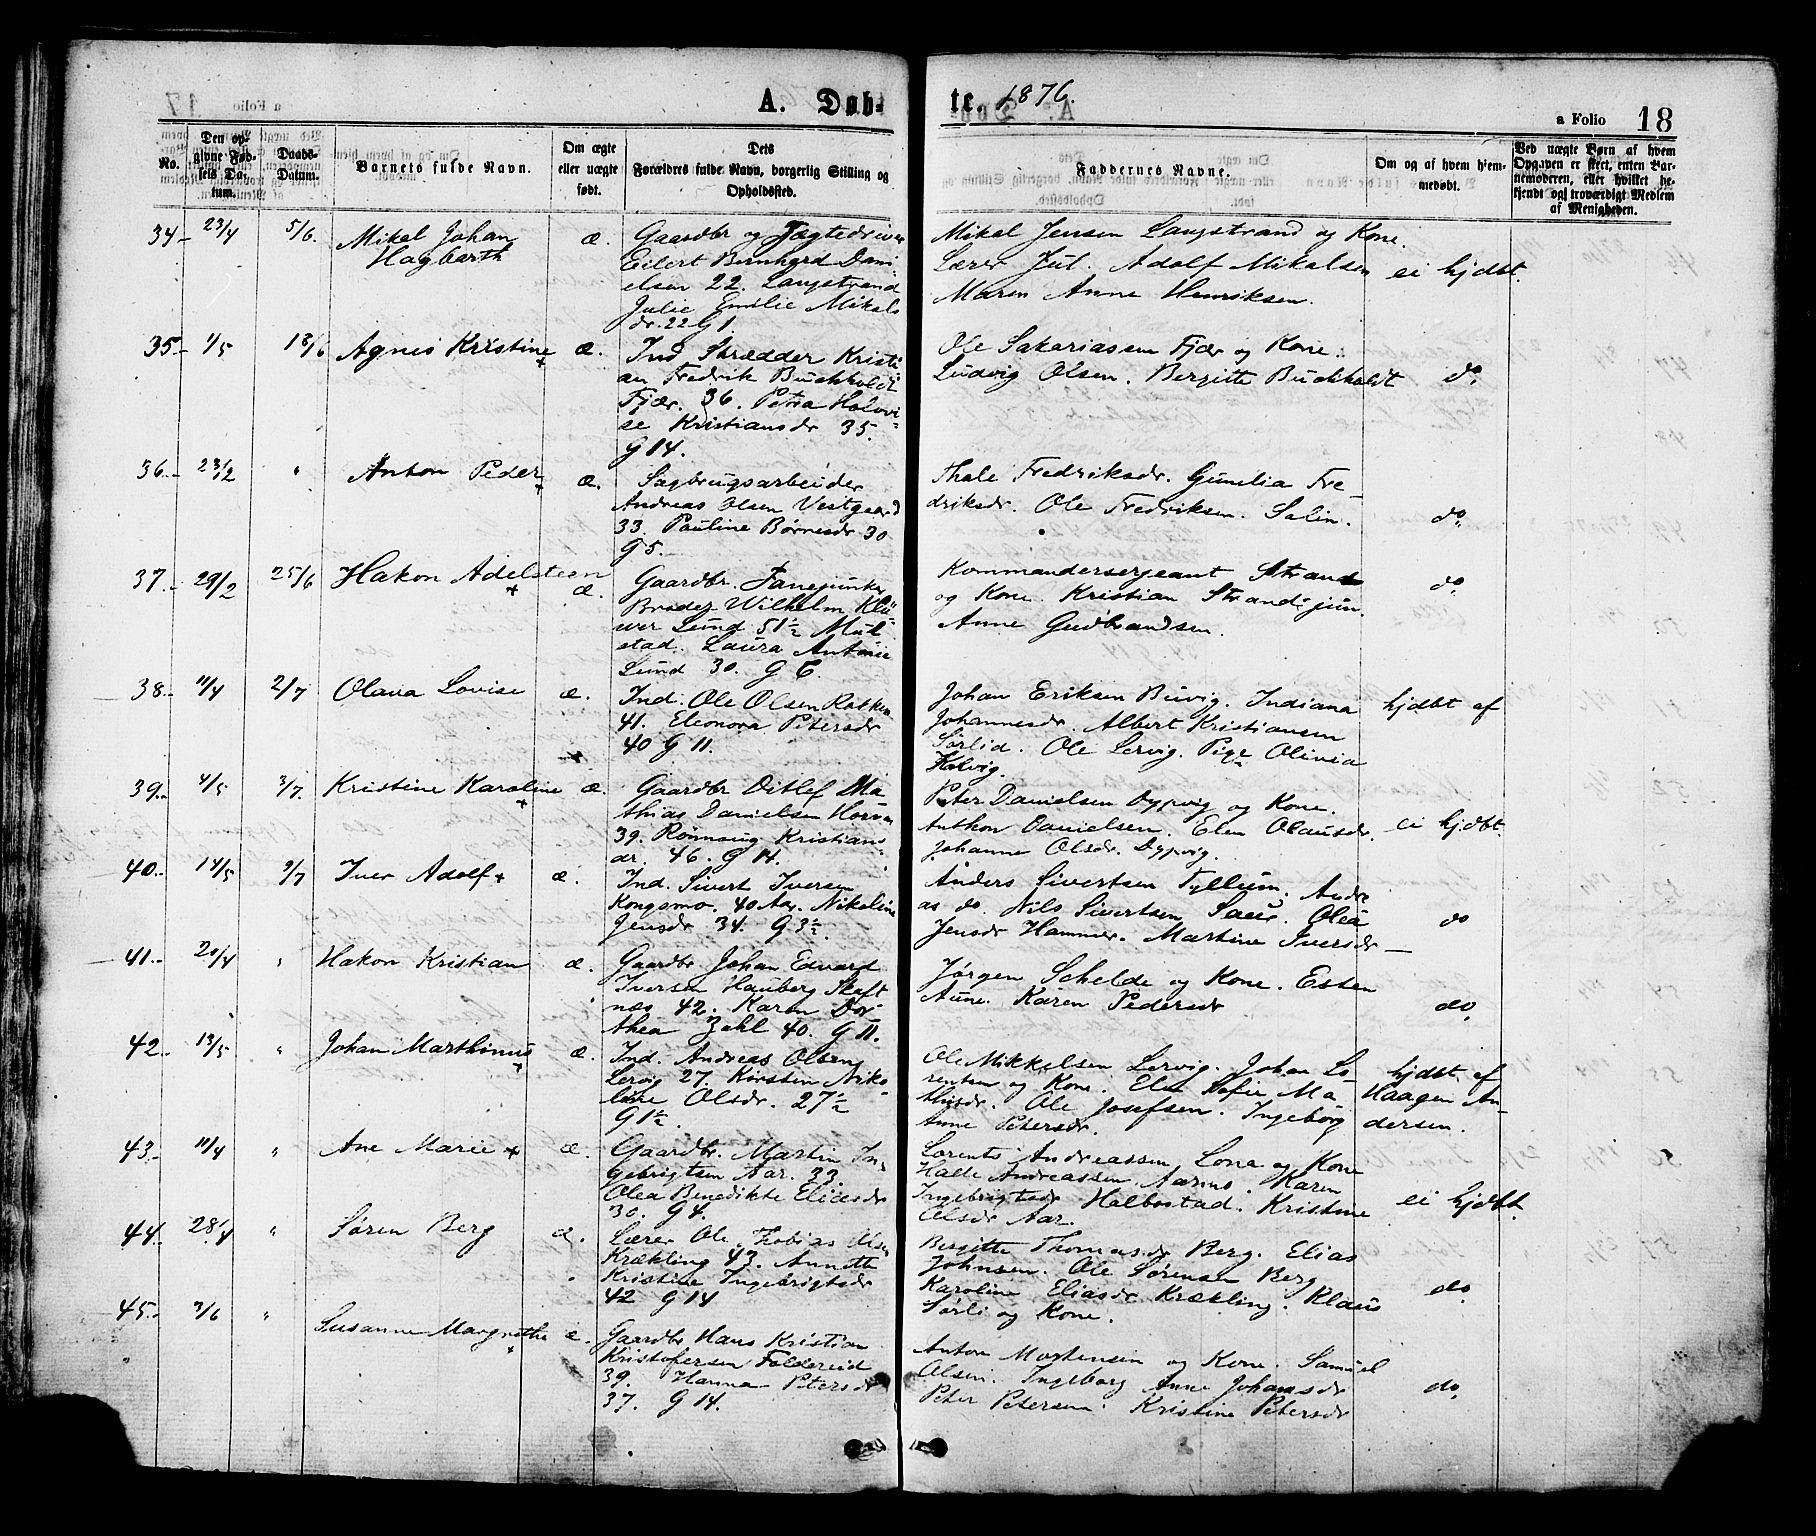 A. Døbte. 1876.
a Folio 18
No.
Den opgivne Fødsels Datum.
Daabs-Datum.
Barnets fulde Navn.
Om ægte eller uægte født.
Dets Forældres fulde Navn, borgerlig Stilling og Opholdssted.
Faddernes Navne.
Om og af hvem hjemmedøbt.
Ved uægte Børn af hvem Opgaven er skeet, enten Barnemoderen, eller hvilket bekjendt og troværdigt Medlem af Menigheden.
34 23/4 5/6. Mikal Johan
Hagbarth
æ.
Gaardbr og Jægtedriver
Eilert Bernhard Dani-
elsen 22. Langstrand
Julie Emilie Mikals
dr. 22 G 1.
Mikal Jensen Langstrand og Kone.
Lærer Jul. Adolf Mikalsen
Maren Anne Henriksen.
ei hjdbt.
35 1/5 18/6 Agnes Kristine æ.
Ind. Skrædder Kristi-
an Fredrik Buchholdt
Fjær. 36. Petra Halovi-
se Kristiansdr 35.
G 14.
Ole Sakariassen Fjær og Kone.
Ludvig Olsen. Bergitte Buchholdt
do.
36 23/2 " Anton Peder æ.
Sagbrugsarbeider
Andreas Olsen Vestgaard
33. Pauline Børnesdr 30
G 5.
Thale Fredriksdr. Gunilia Fre-
driksdr. Ole Fredriksen. Salin.
do.
37. 29/2 25/6 Hakon Adelsteen æ.
Gaardbr. Fanejunker
Broder Wilhelm Klü-
wer Lund 51½
stad. Laura Antonie
Lund 30. G 6.
Kommandersergeant Strand
og Kone. Kristian Strand jun.
Anne Gudbrandsen.
do.
38 11/4 2/7 Olava Lovise æ.
Ind. Ole Olsen Rakken
41. Eleonora Petersdr
40 G 11.
Johan Eriksen Buvig. Indiana
Johannesdr. Albert Kristiansen
Sørlid. Ole Lervig. Pige Olivia
Kalvig.
hjdbt af
39 4/5 3/7. Kristine Karoline æ.
Gaardbr Ditlef Ma
thias Danielsen Horven
39. Rønnaug Kristians-
dr. 46. G 14.
Peter Danielsen Dypvig og Kone.
Anthon Danielsen. Elen Olausdr.
Johanna Olsdr. Dypvig.
ei hjdbt.
40 14/5 9/7 Iver Adolf æ.
Ind. Sivert Iversen
Kongsmo. 40 Aar. Nikoline
Jensdr 34. G 3½.
Anders Sivertsen Fyllum. Andre
as do. Nils Sivertsen Saur. Olea
Jensdr Hammer. Martine Iversdr
do
41 20/4 " Hakon Kristian æ.
Gaardbr. Johan Edvard
Iversen Hauberg Skaft
næs 42. Karen Dor
thea Zahl 40. G 11.
Jørgen Schelde og Kone. Esten
Aune. Karen Pedersdr
do.
42 13/5 " Johan Marthinus æ.
Ind. Andreas Olsen
Lervig 27. Kirsten Niko-
line Olsdr. 27½
G 1½.
Ole Mikkelsen Lervig. Johan Lo
rentsen og Kone. Elen Sofie Ma-
thisdr. Ole Josefsen. Ingeborg
Anne Petersdr.
hjdbt af
Haagen An-
dersen.
43 11/4 " Ane Marie æ.
Gaardbr. Martin In-
gebrigtsen Aar. 33.
Olea Benedikte Eliasdr
30. G 4.
Lorents Andreassen Lona og Kone
Halle Andreassen Aarmo. Karen
Ingebrigtsdr Halbostad. Kristine
Olsdr Aar.
ei hjdbt.
44 28/4 " Søren Berg æ.
Lærer Ole Tobias Olsen
Krækling 43. Annette
Kristine Ingebrigtsdr
42 G 14
Bergitte Thomasdr Berg. Elias
Johnsen. Ole Sørensen Berg
Karoline Eliasdr Krækling. Klaus
Sørli og Kone.
do.
45 3/6 " Susanne Margrethe æ.
Gaardbr Hans Kristian
Kristofersen Foldereid
39. Hanna Petersdr
37. G 14.
Anton Mortensen og Kone. Samuel
Olsen. Ingeborg Anne Johansdr
Peter Petersen. Kristine Petersdr
do.